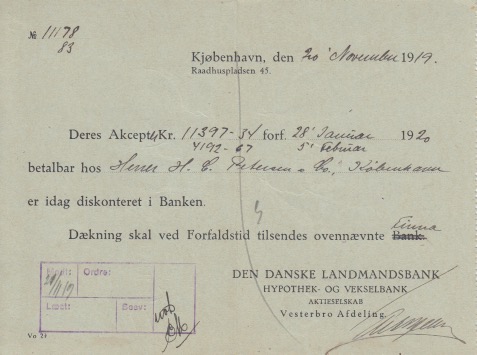 № 11178
83
Kjøbenhavn, den 20' November 1919.
Raadhuspladsen 45.
Deres Akcept Kr. 11397-34 forf. 28' Januar 1920
4192-67 5' Februar
betalbar hos Herrer H. C. Petersen & Co., København
er idag diskonteret i Banken.
Firma
Dækning skal ved Forfaldstid tilsendes ovennævnte Bank.
DEN DANSKE LANDMANDSBANK
HYPOTHEK- OG VEKSELBANK
AKTIESELSKAB
Vesterbro Afdeling.
Ordre:
Læst: Besv.:
Vo 21